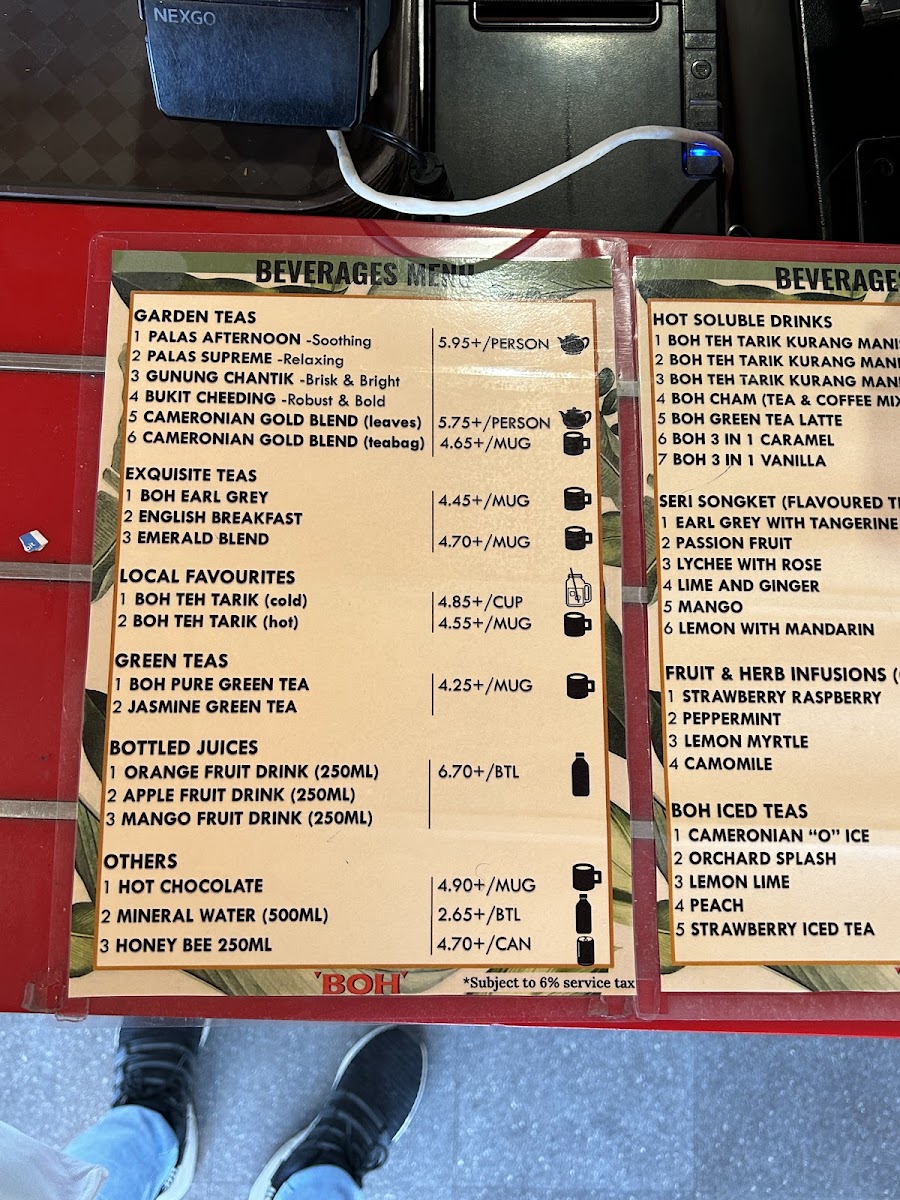 NEXGO
BEVERAGES MENU
GARDEN TEAS
1 PALAS AFTERNOON -Soothing 5.95+/PERSON
2 PALAS SUPREME -Relaxing
3 GUNUNG CHANTIK -Brisk & Bright
4 BUKIT CHEEDING -Robust & Bold
5 CAMERONIAN GOLD BLEND (leaves) 5.75+/PERSON
6 CAMERONIAN GOLD BLEND (teabag) 4.65+/MUG
EXQUISITE TEAS
1 BOH EARL GREY 4.45+/MUG
2 ENGLISH BREAKFAST
3 EMERALD BLEND 4.70+/MUG
LOCAL FAVOURITES
1 BOH TEH TARIK (cold) 4.85+/CUP
2 BOH TEH TARIK (hot) 4.55+/MUG
GREEN TEAS
1 BOH PURE GREEN TEA 4.25+/MUG
2 JASMINE GREEN TEA
BOTTLED JUICES
1 ORANGE FRUIT DRINK (250ML) 6.70+/BTL
2 APPLE FRUIT DRINK (250ML)
3 MANGO FRUIT DRINK (250ML)
OTHERS
1 HOT CHOCOLATE 4.90+/MUG
2 MINERAL WATER (500ML) 2.65+/BTL
3 HONEY BEE 250ML 4.70+/CAN
'BOH'
*Subject to 6% service tax
BEVERAGES
HOT SOLUBLE DRINKS
1 BOH TEH TARIK KURANG
2 BOH TEH TARIK KURANG
3 BOH TEH TARIK KURANG
4 BOH CHAM (TEA & COFFEE
5 BOH GREEN TEA LATTE
6 BOH 3 IN 1 CARAMEL
7 BOH 3 IN 1 VANILLA
SERI SONGKET (FLAVOURED
1 EARL GREY WITH TANGERINE
2 PASSION FRUIT
3 LYCHEE WITH ROSE
4 LIME AND GINGER
5 MANGO
6 LEMON WITH MANDARIN
FRUIT & HERB INFUSIONS
1 STRAWBERRY RASPBERRY
2 PEPPERMINT
3 LEMON MYRTLE
4 CAMOMILE
BOH ICED TEAS
1 CAMERONIAN "O" ICE
2 ORCHARD SPLASH
3 LEMON LIME
4 PEACH
5 STRAWBERRY ICED TEA